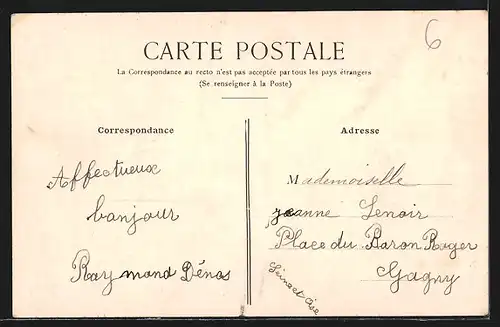 6
CARTE POSTALE
La Correspondance au recto n'est pas acceptée par tous les pays étrangers
(Se renseigner à la Poste)
Correspondance
Affectueux
bonjour
Raymond Dénos
Adresse
Mademoiselle
jeanne Lenoir
Place du Baron Roger
Gagny
Seine et Oise